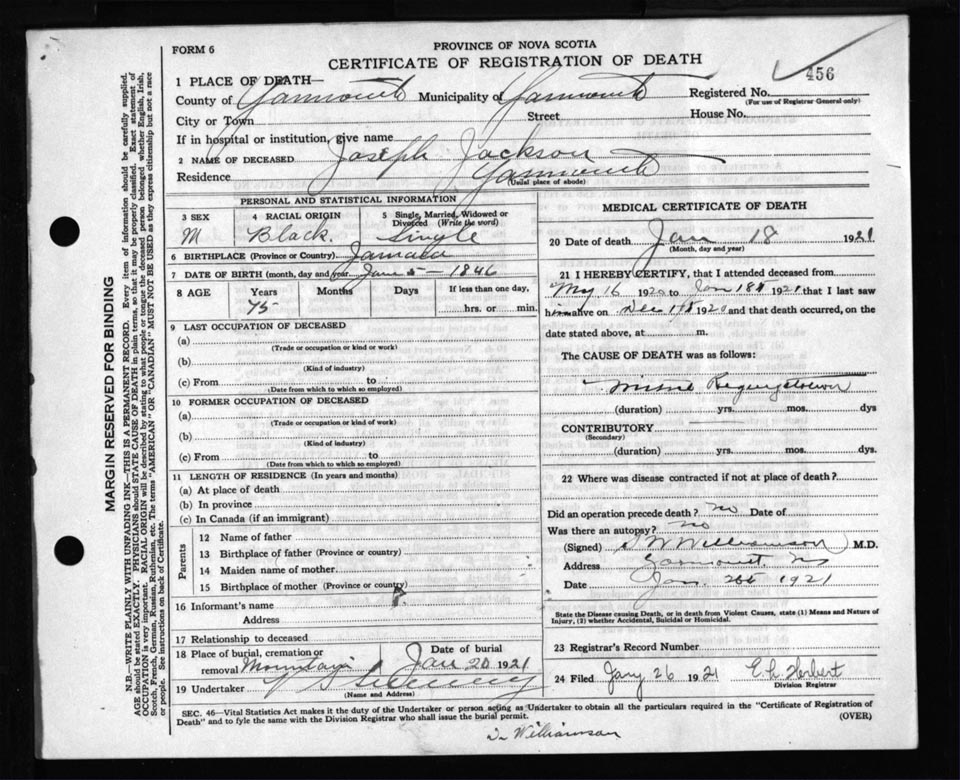 FORM 6
PROVINCE OF NOVA SCOTIA
CERTIFICATE OF REGISTRATION OF DEATH
456
1 PLACE OF DEATH—
County of Yarmouth Municipality of Yarmouth Registered No.
(For use of Registrar General only)
City or Town Street House No.
If in hospital or institution, give name
2 NAME OF DECEASED Joseph Jackson
Residence Yarmouth
(Usual place of abode)
PERSONAL AND STATISTICAL INFORMATION
3 SEX 4 RACIAL ORIGIN 5 Single, Married, Widowed or Divorced (Write the word)
M Black. Single
6 BIRTHPLACE (Province or Country) Jamaca
7 DATE OF BIRTH (month, day and year 5 - 1846
8 AGE Years Months Days If less than one day,
75 hrs. or min.
9 LAST OCCUPATION OF DECEASED
(a)
(Trade or occupation or kind or work)
(b)
(Kind of industry)
(c) From to
(Date from which to which so employed)
10 FORMER OCCUPATION OF DECEASED
(a)
(Trade or occupation or kind of work)
(b)
(Kind of industry)
(c) From to
(Date from which to which so employed)
11 LENGTH OF RESIDENCE (In years and months)
(a) At place of death
(b) In province
(c) In Canada (if an immigrant)
Parents
12 Name of father
13 Birthplace of father (Province or country)
14 Maiden name of mother
15 Birthplace of mother (Province or country)
16 Informant's name
Address
17 Relationship to deceased
18 Place of burial, cremation or removal Date of burial
Jan 20 1921
19 Undertaker Sweeney
(Name and Address)
MEDICAL CERTIFICATE OF DEATH
20 Date of death Jan 18 1921
(Month, day and year)
21 I HEREBY CERTIFY, that I attended deceased from
16 1920 to Jan 18th 1921 that I last saw
him alive on Dec 1920 and that death occurred, on
date stated above, at m.
The CAUSE OF DEATH was as follows:
Mitral Regurgitation
(duration) yrs. mos. dys
CONTRIBUTORY
(Secondary)
(duration) yrs. mos. dys.
22 Where was disease contracted if not at place of death?
Did an operation precede death? no Date of
Was there an autopsy? no
(Signed) Williamson M.D.
Address Yarmouth NS
Date Jan. 1921
State the Disease causing Death, or in death from Violent Causes, state (1) Means and Nature of
Injury, (2) whether Accidental, Suicidal or Homicidal.
23 Registrar's Record Number
24 Filed Jany 26 1921 Herbert
Division Registrar
SEC. 46—Vital Statistics Act makes it the duty of the Undertaker or person acting as Undertaker to obtain all the particulars required in the "Certificate of Registration of
Death" and to fyle the same with the Division Registrar who shall issue the burial permit. (OVER)
Williamson
MARGIN RESERVED FOR BINDING
N.B.—WRITE PLAINLY WITH UNFADING INK—THIS IS A PERMANENT RECORD. Every item of information should be carefully supplied.
AGE should be stated EXACTLY. PHYSICIANS should STATE CAUSE OF DEATH in plain terms, so that it may be properly classified. Exact statement of
OCCUPATION is very important. RACIAL ORIGIN will be described by stating to what people or tongue the deceased person belonged whether English, Irish,
Scotch, French, German, Russian, Ruthenian, etc. The terms "AMERICAN" OR "CANADIAN" MUST NOT BE USED as they express citizenship but not a race
or people. See instructions on back of Certificate.